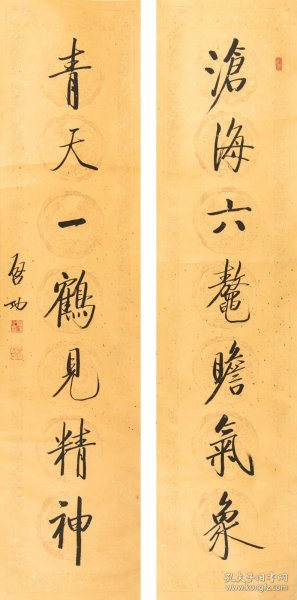 滄海六鼇瞻氣象
青天一鶴見精神
啓功
孔夫子旧书网
www.kongfz.com